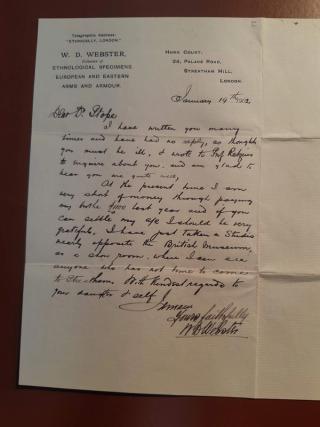 Telegraphic Address:
"ETHNICALLY, LONDON."
W. D. WEBSTER,
Collector of
ETHNOLOGICAL SPECIMENS,
EUROPEAN AND EASTERN
ARMS AND ARMOUR.
24, PALACE ROAD,
STREATHAM HILL,
LONDON.
January 19th
Dear Dr. Stolpe
I have written you many
times and have had no reply, so thought
you must be ill, & wrote to Prof
to inquire about you. and am glad to
hear you are quite well,
At the present time I am
very short of money through paying
my last year and if you
can settle my a/c I should be very
grateful. I have just taken a Studio
nearly opposite the British Museum,
as a show room, where I can see
anyone who has not time to come
to Streatham. With kindest regards to
your daughter & self
I remain
Yours faithfully
W D Webster